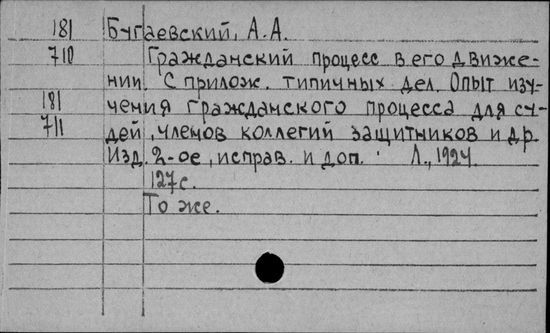 181 Бугаевский, А.А.
710 Гражданский процесс в его движе-
нии. С прилож. типичных дел. Опыт изу-
181 чения гражданского процесса для су-
711 дей, членов коллегий защитников и др.
Изд. 2-ое, исправ. и доп. Л., 1924.
127 с.
То же.